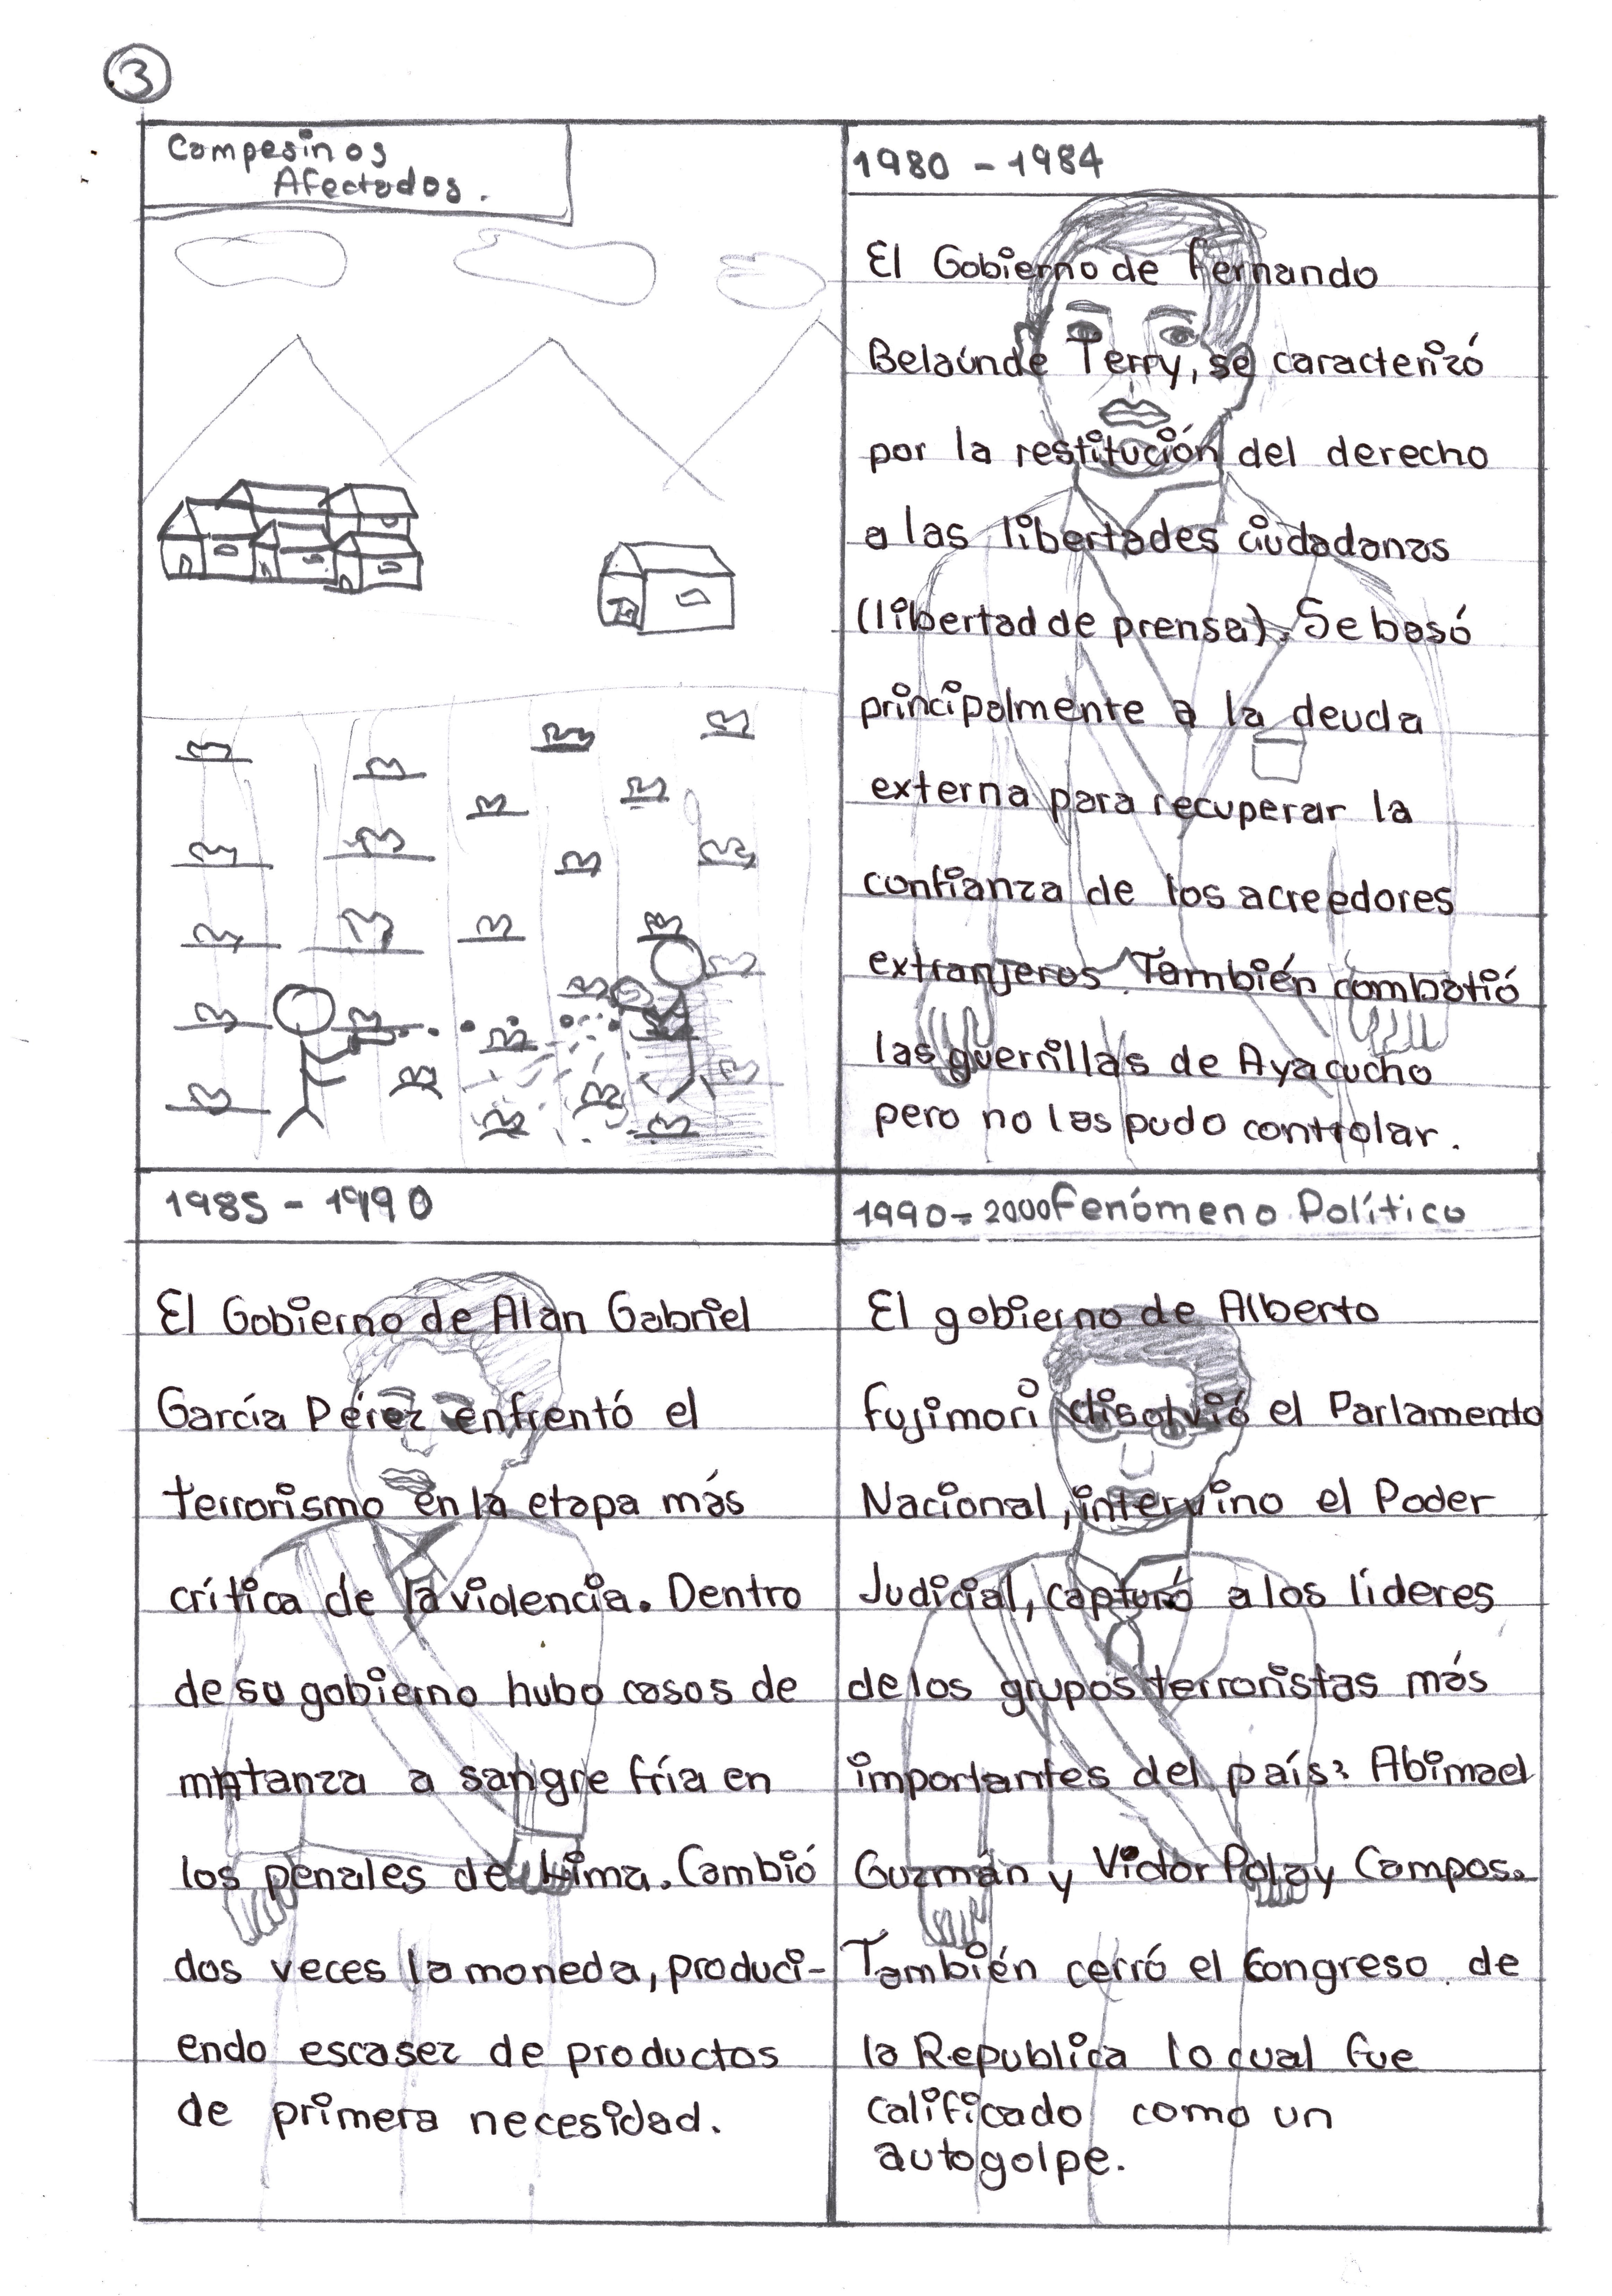 3
Campesinos
Afectados.
1980 - 1984
El Gobierno de Fernando
Belaúnde Terry, se caracterizó
por la restitución del derecho
a las libertades ciudadanas
(libertad de prensa). Se basó
principalmente a la deuda
externa para recuperar la
confianza de los acreedores
extranjeros. También combatió
las guerrillas de Ayacucho
pero no las pudo controlar.
1985 - 1990
El Gobierno de Alan Gabriel
García Pérez enfrentó el
terrorismo en la etapa más
crítica de la violencia. Dentro
de su gobierno hubo casos de
matanza a sangre fría en
los penales de Lima. Cambió
dos veces la moneda, produci-
endo escasez de productos
de primera necesidad.
1990-2000 Fenómeno Político
El gobierno de Alberto
Fujimori disolvió el Parlamento
Nacional, intervino el Poder
Judicial, capturó a los líderes
de los grupos terroristas más
importantes del país: Abimael
Guzmán y Victor Polay Campos.
También cerró el Congreso de
la Republica lo cual fue
calificado como un
autogolpe.